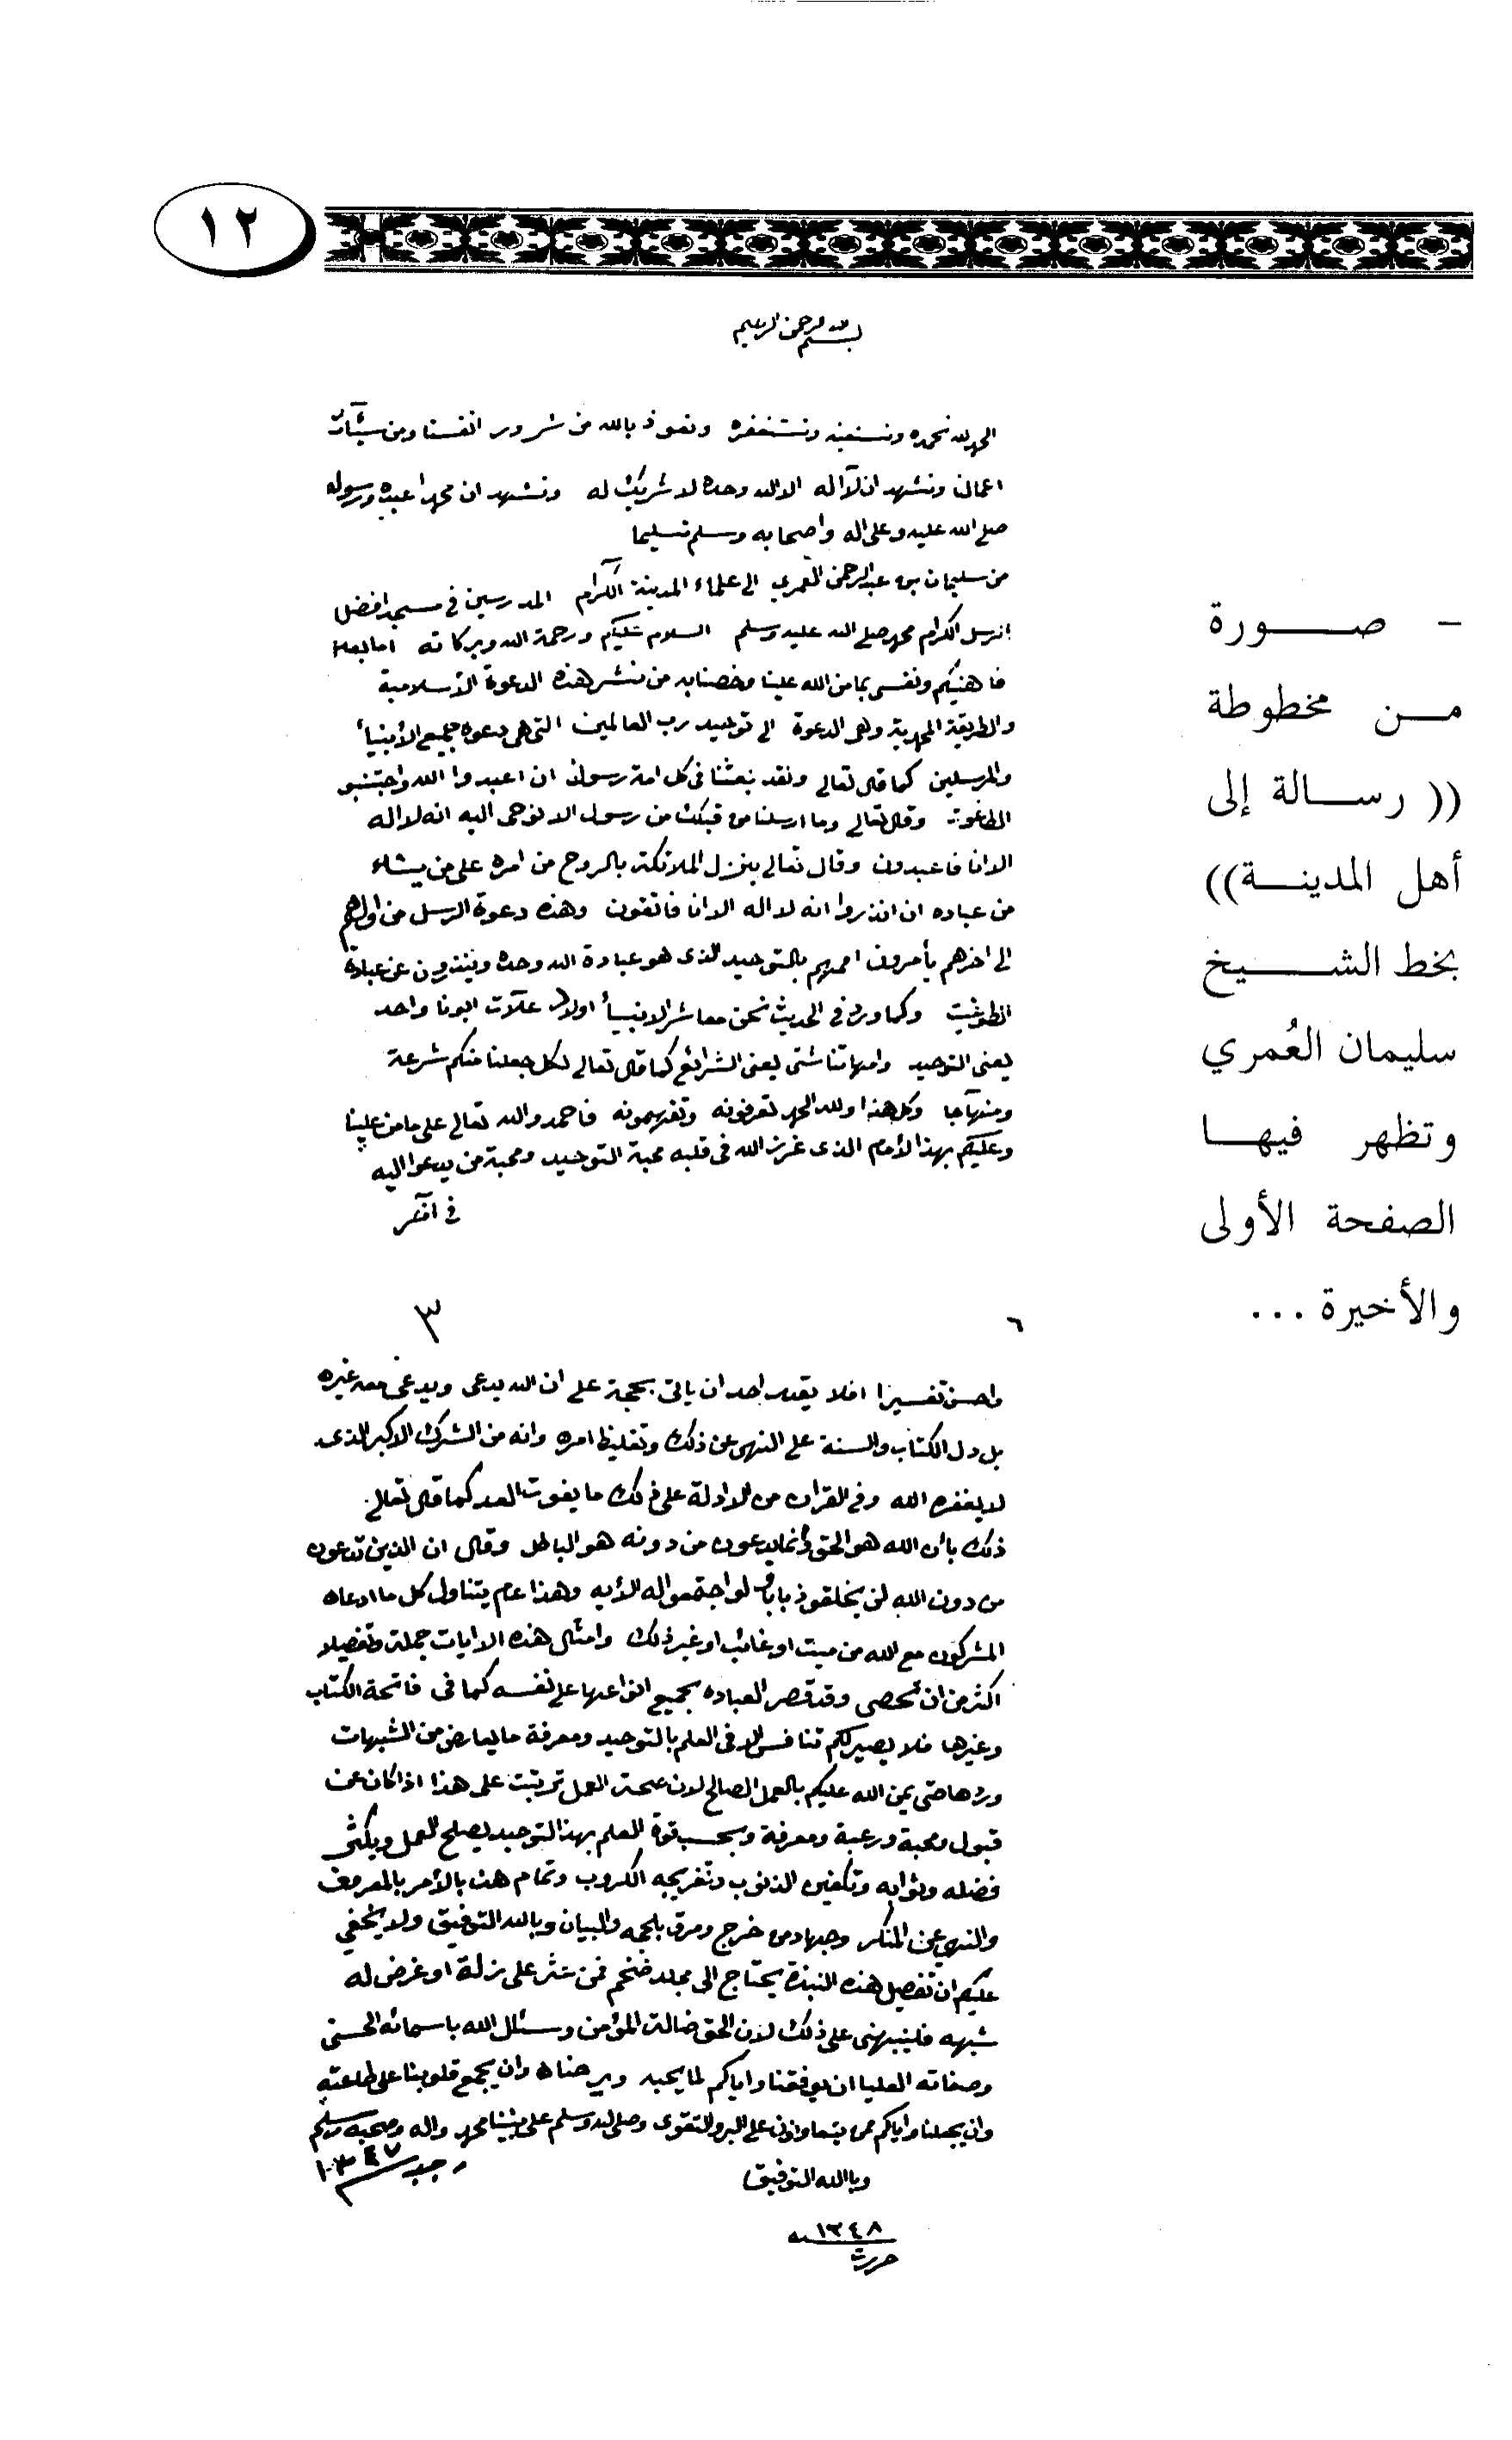 ١٢
بسم الله الرحمن الرحيم
الحمد لله نحمده ونستعينه ونستغفره ونعوذ بالله من شرور انفسنا ومن سيئات
اعمالنا ونشهد ان لا اله الا الله وحده لا شريك له ونشهد ان محمدا عبده ورسوله
صلى الله عليه وعلى اله واصحابه وسلم تسليما
من سليمان بن عبد الرحمن العمري الى علماء المدينة الكرام المدرسين في مسجد افضل
الرسل الكرام محمد صلى الله عليه وسلم السلام عليكم ورحمة الله وبركاته اما بعد
فاهنيكم ونفسي بما من الله علينا وخصنا به من نشر هذه الدعوة الأسلامية
والطريقة المحمدية وهي الدعوة الى توحيد رب العالمين التي هي دعوة جميع الأنبيأ
والمرسلين كما قال تعالى ولقد بعثنا في كل امة رسولا ان اعبدوا الله واجتنبو
الطاغوت وقال تعالى وما ارسلنا من قبلك من رسول الا نوحى اليه انه لا اله
الا انا فاعبدون وقال تعالى ينزل الملائكة بالروح من امره على من يشاء
من عباده ان انذروا انه لا اله الا انا فاتقون وهذه دعوة الرسل من اولهم
الى اخرهم يأمرون اممهم بالتوحيد الذى هو عبادة الله وحده وينذرون عن عبادة
الطواغيت وكما ورد في الحديث نحن معاشر الانبيأ اولاد علات ابونا واحد
يعنى التوحيد وامهاتنا شتى يعنى الشرائع كما قال تعالى لكل جعلنا منكم شرعة
ومنهاجا وكل هذا ولله الحمد تعرفونه وتفهمونه فاحمدوا الله تعالى على ما من علينا
وعليكم بهذا الأمام الذى غرز الله فى قلبه محبة التوحيد ومحبة من يدعوا اليه
في
٣
٦
واحسن تفسيرا افلا يقدر احد ان ياتى بحجة على ان الله يدعى ويدعى معه غيره
بل دل الكتاب والسنة على النهى عن ذلك وتغليظ امره وانه من الشرك الاكبر الذى
لا يغفره الله وفي القران من الادلة على ذلك ما يفوت العد كما قال تعالى
ذلك بأن الله هو الحق وأنما يدعون من دونه هو الباطل وقال ان الذين تدعون
من دون الله لن يخلقو ذبابا ولو اجتمعوا له الأيه وهذا عام يتناول كل ما ادعاه
المشركون مع الله من ميت او غائب او غير ذلك وامثال هذه الايات جملة وتفصيلا
اكثر من ان تحصى وقد قصر العباده بجميع انواعها على نفسه كما فى فاتحة الكتاب
وغيرها فلا يصير لكم تنافس الا فى العلم بالتوحيد ومعرفة ما يعارض من الشبهات
وردها حتى يمن الله عليكم بالعمل الصالح لان صحة العمل ترتبت على هذا اذا كان عن
قبول ومحبة ورغبة ومعرفة وبحسب قوة العلم بهذا التوحيد يصلح العمل ويكثر
فضله وثوابه وتكفير الذنوب وتفريج الكروب وتمام هذا بالأمر بالمعروف
والنهي عن المنكر وجهاد من خرج ومرق بالحجه والبيان وبالله التوفيق ولا يخفي
عليكم ان تفصيل هذه النبذة يحتاج الى مجلد ضخم فمن عثر على زلة او عرض له
شبهه فلينبهنى على ذلك لان الحق ضالة المؤمن ونسئل الله باسمائه الحسنى
وصفاته العليا ان يوفقنا واياكم لما يحبه ويرضاه وان يجمع قلوبنا على طاعته
وان يجعلنا واياكم ممن يتعاونون على البر والتقوى وصلى الله وسلم على نبينا محمد واله وصحبه وسلم
وبا الله التوفيق
رجب ١٣٤٧
١٣٤٨ ه
حررت
– صورة
من مخطوطة
(( رسالة إلى
أهل المدينة))
بخط الشيخ
سليمان العُمري
وتظهر فيها
الصفحة الأولى
والأخيرة ...